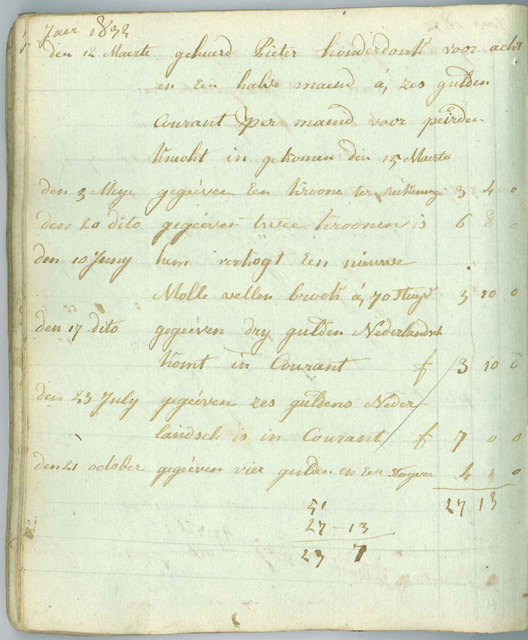 Jaer 1832
den 12 Maerte gehuerd Pieter honderdonk voor acht
en een halve maend á, zes gulden
Courant per maend voor peirden
knecht in gekomen den 15 Maerte
den 3 Meye gegeéven een kroone 3 4 0
den 20 dito gegeéven twee kroonen is 6 8 0
den 10 Juny hem verkogt een nieuwe
Molle vellen broek á, 70 stuyv 3 10 0
den 17 dito gegeéven dry gulden Nederlandsch
komt in Courant f 3 10 0
den 23 July gegeéven zes guldens Neder-
landsch is in Courant f 7 0 0
den 21 october gegeéven vier gulden en een stuyver 4 1 0
27 13
51
27 - 13
23 7